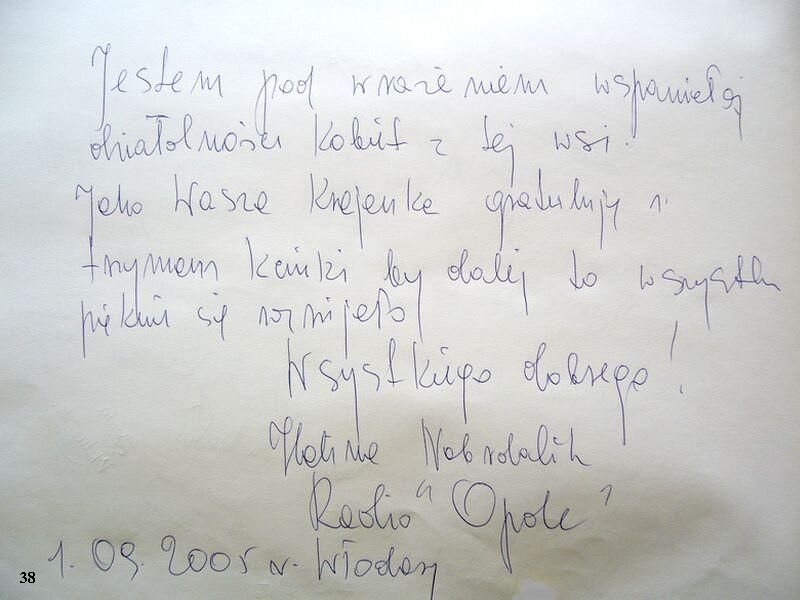 Jestem pod wrażeniem wspaniałej
działalności kobiet z tej wsi.
Jako Wasza Krajanka gratuluję i
trzymam kciuki by dalej to wszystko
pięknie się rozwijało
Wszystkiego dobrego!
Halina Nabrdalik
Radio "Opole"
1. 09. 2005 r. Włodary
38